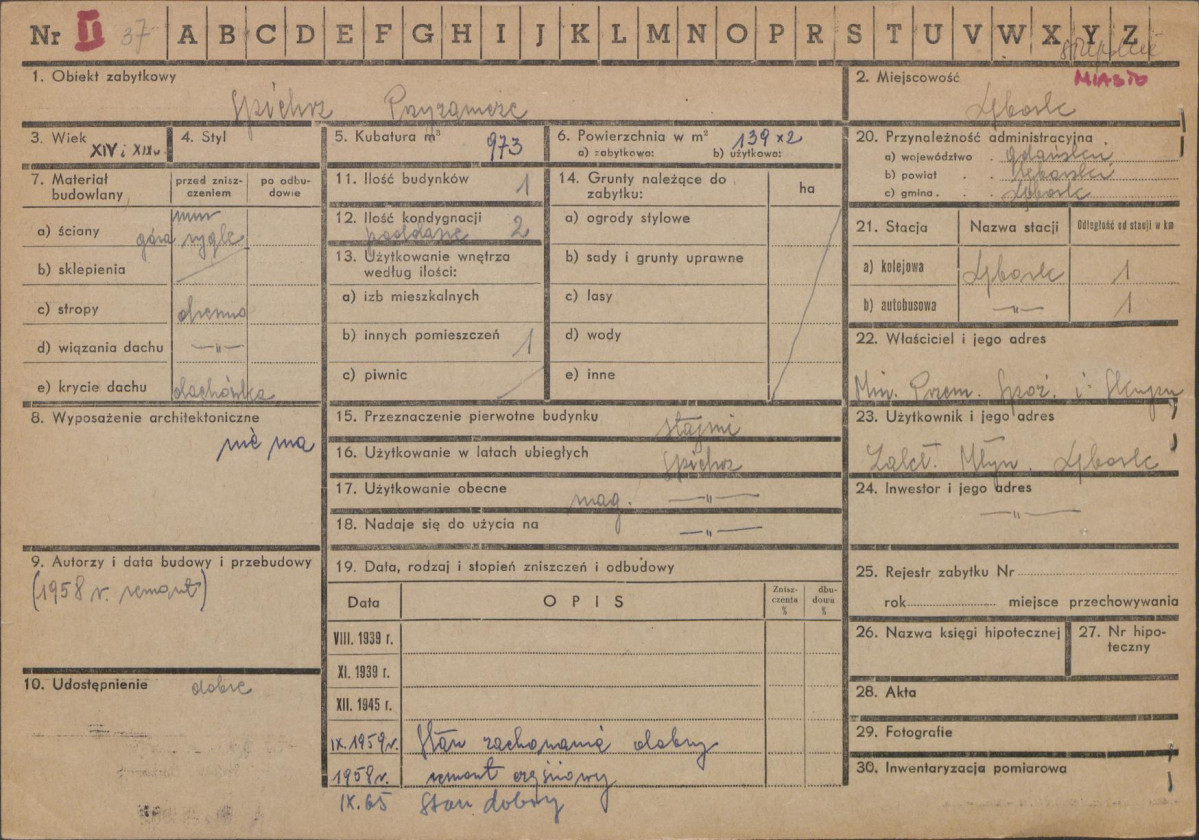 Nr II 37 A B C D E F G H I J K L M N O P R S T U V W X Y Z
1. Obiekt zabytkowy
Spichrz Przyzamcze
2. Miejscowość MIASTO
Lębork
3. Wiek XIV i XIX w.
4. Styl
5. Kubatura m³ 973
6. Powierzchnia w m² 139 x 2
a) zabytkowa: b) użytkowa:
20. Przynależność administracyjna
a) województwo gdański
b) powiat lęborski
c) gmina Lębork
7. Materiał budowlany
przed zniszczeniem
po odbudowie
a) ściany mur
góra rygle
b) sklepienia
c) stropy drewno
d) wiązania dachu —"—
e) krycie dachu dachówka
11. Ilość budynków 1
12. Ilość kondygnacji 2
poddasze
13. Użytkowanie wnętrza
według ilości:
a) izb mieszkalnych
b) innych pomieszczeń 1
c) piwnic
14. Grunty należące do
zabytku:
ha
a) ogrody stylowe
b) sady i grunty uprawne
c) lasy
d) wody
e) inne
21. Stacja Nazwa stacji Odległość od stacji w km
a) kolejowa Lębork 1
b) autobusowa —"— 1
22. Właściciel i jego adres
Min. Przem. Spoż. i Skupu
8. Wyposażenie architektoniczne
nie ma
15. Przeznaczenie pierwotne budynku stajni
16. Użytkowanie w latach ubiegłych Spichrz
17. Użytkowanie obecne mag. —"—
18. Nadaje się do użycia na —"—
23. Użytkownik i jego adres
Zakł. Młyn. Lębork
24. Inwestor i jego adres
—"—
9. Autorzy i data budowy i przebudowy
(1958 r. remont)
10. Udostępnienie dobre
19. Data, rodzaj i stopień zniszczeń i odbudowy
Data OPIS Zniszczenia % dbudowa %
VIII. 1939 r.
XI. 1939 r.
XII. 1945 r.
IX. 1959 r. Stan zachowania dobry
1958 r. remont częściowy
IX. 65 Stan dobry
25. Rejestr zabytku Nr
rok miejsce przechowywania
26. Nazwa księgi hipotecznej
27. Nr hipoteczny
28. Akta
29. Fotografie
30. Inwentaryzacja pomiarowa